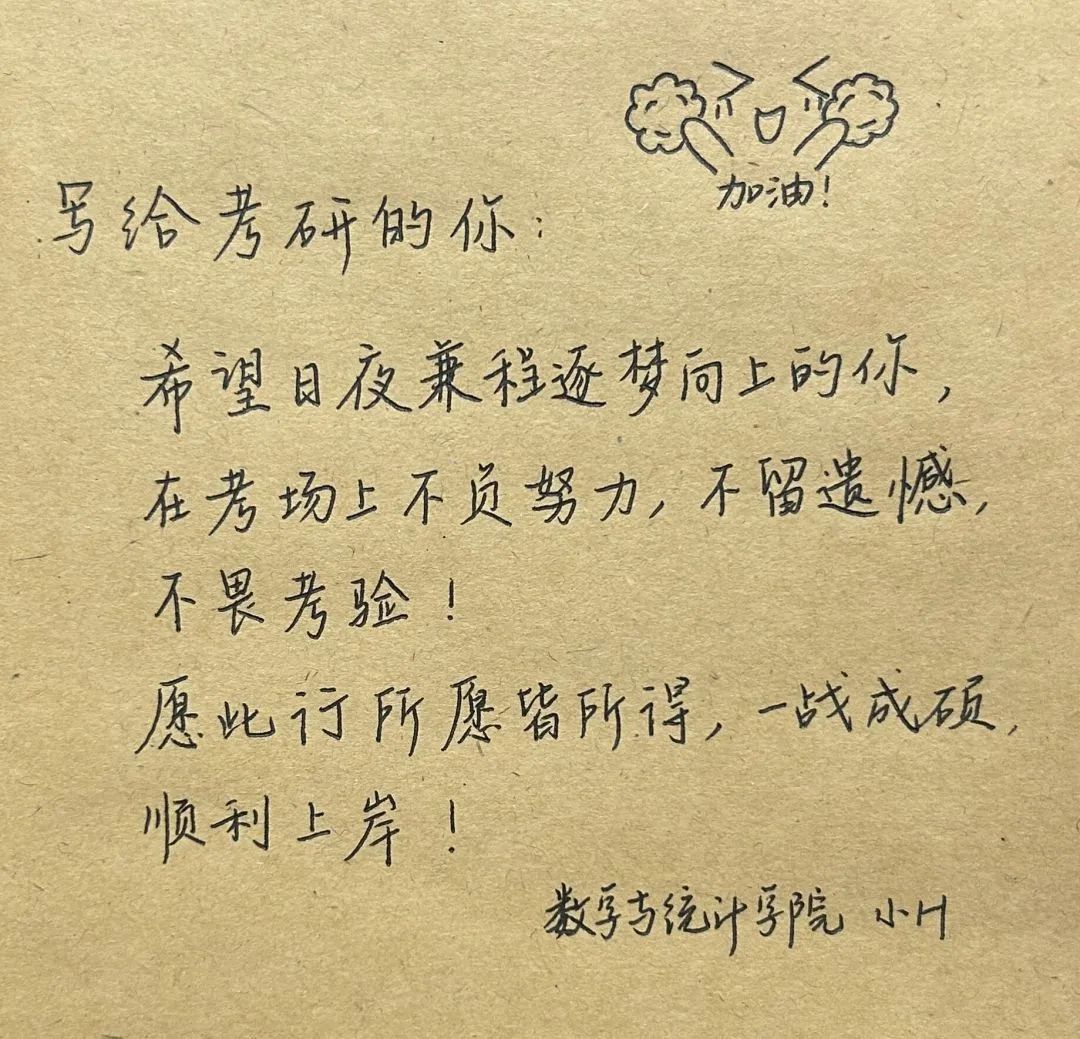 加油!
写给考研的你:
希望日夜兼程逐梦向上的你,
在考场上不负努力,不留遗憾,
不畏考验!
愿此行所愿皆所得,一战成硕,
顺利上岸!
数学与统计学院 小H